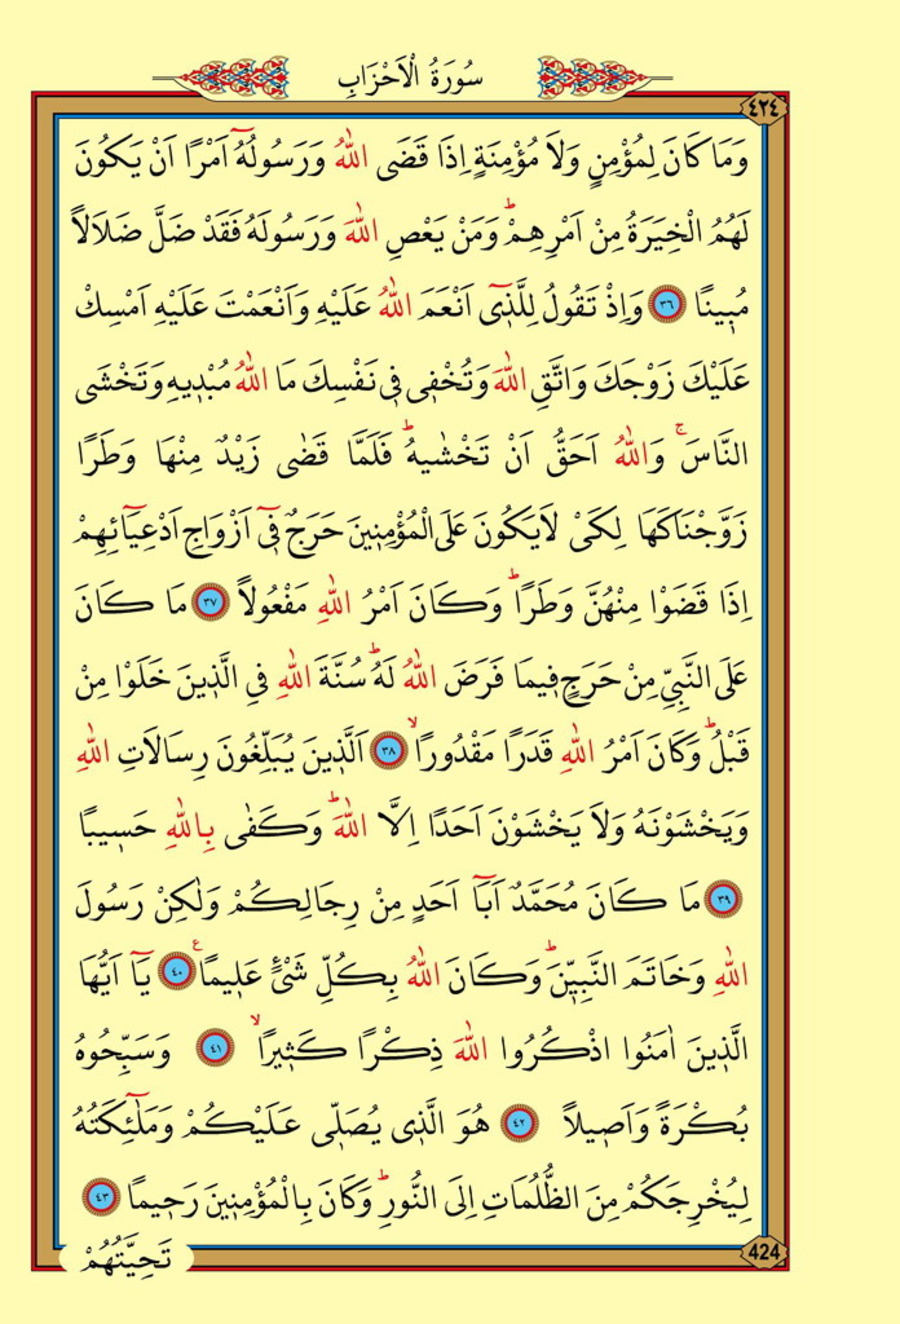 سُورَةُ الْاَحْزَابِ
٤٢٤
وَمَا كَانَ لِمُؤْمِنٍ وَلَا مُؤْمِنَةٍ اِذَا قَضَى اللّٰهُ وَرَسُولُهُٓ اَمْرًا اَنْ يَكُونَ
لَهُمُ الْخِيَرَةُ مِنْ اَمْرِهِمْؕ وَمَنْ يَعْصِ اللّٰهَ وَرَسُولَهُ فَقَدْ ضَلَّ ضَلَالًا
مُب۪ينًا ﴿٣٦﴾ وَاِذْ تَقُولُ لِلَّذ۪ٓي اَنْعَمَ اللّٰهُ عَلَيْهِ وَاَنْعَمْتَ عَلَيْهِ اَمْسِكْ
عَلَيْكَ زَوْجَكَ وَاتَّقِ اللّٰهَ وَتُخْف۪ي ف۪ي نَفْسِكَ مَا اللّٰهُ مُبْد۪يهِ وَتَخْشَى
النَّاسَۚ وَاللّٰهُ اَحَقُّ اَنْ تَخْشٰيهُؕ فَلَمَّا قَضٰى زَيْدٌ مِنْهَا وَطَرًا
زَوَّجْنَاكَهَا لِكَيْ لَا يَكُونَ عَلَى الْمُؤْمِن۪ينَ حَرَجٌ ف۪ٓي اَزْوَاجِ اَدْعِيَٓائِهِمْ
اِذَا قَضَوْا مِنْهُنَّ وَطَرًاؕ وَكَانَ اَمْرُ اللّٰهِ مَفْعُولًا ﴿٣٧﴾ مَا كَانَ
عَلَى النَّبِيِّ مِنْ حَرَجٍ ف۪يمَا فَرَضَ اللّٰهُ لَهُؕ سُنَّةَ اللّٰهِ فِي الَّذ۪ينَ خَلَوْا مِنْ
قَبْلُؕ وَكَانَ اَمْرُ اللّٰهِ قَدَرًا مَقْدُورًاۙ ﴿٣٨﴾ اَلَّذ۪ينَ يُبَلِّغُونَ رِسَالَاتِ اللّٰهِ
وَيَخْشَوْنَهُ وَلَا يَخْشَوْنَ اَحَدًا اِلَّا اللّٰهَؕ وَكَفٰى بِاللّٰهِ حَس۪يبًا
﴿٣٩﴾ مَا كَانَ مُحَمَّدٌ اَبَٓا اَحَدٍ مِنْ رِجَالِكُمْ وَلٰكِنْ رَسُولَ
اللّٰهِ وَخَاتَمَ النَّبِيّ۪نَؕ وَكَانَ اللّٰهُ بِكُلِّ شَيْءٍ عَل۪يمًا ع ﴿٤٠﴾ يَٓا اَيُّهَا
الَّذ۪ينَ اٰمَنُوا اذْكُرُوا اللّٰهَ ذِكْرًا كَث۪يرًاۙ ﴿٤١﴾ وَسَبِّحُوهُ
بُكْرَةً وَاَص۪يلًا ﴿٤٢﴾ هُوَ الَّذ۪ي يُصَلّ۪ي عَلَيْكُمْ وَمَلٰٓئِكَتُهُ
لِيُخْرِجَكُمْ مِنَ الظُّلُمَاتِ اِلَى النُّورِؕ وَكَانَ بِالْمُؤْمِن۪ينَ رَح۪يمًا ﴿٤٣﴾
424
تَحِيَّتُهُمْ